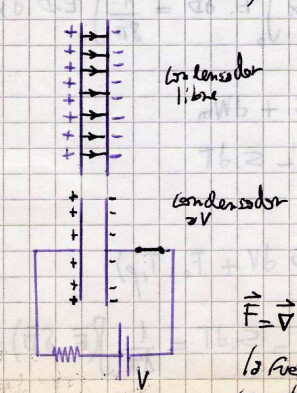 condensador
libre
condensador
a V
V
F = ∇
la Fue